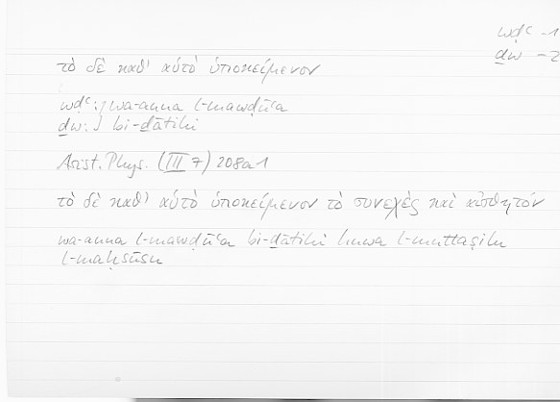 wḍʿ -1
ḏw -2
τὸ δὲ καθ' αὑτὸ ὑποκείμενον
wḍʿ: } wa-anna l-mawḍūʿa
ḏw: } bi-ḏātihi
Arist. Phys. (III 7) 208a1
τὸ δὲ καθ' αὑτὸ ὑποκείμενον τὸ συνεχὲς καὶ αἰσθητόν
wa-anna l-mawḍūʿa bi-ḏātihi huwa l-muttaṣilu
l-maḥsūsu